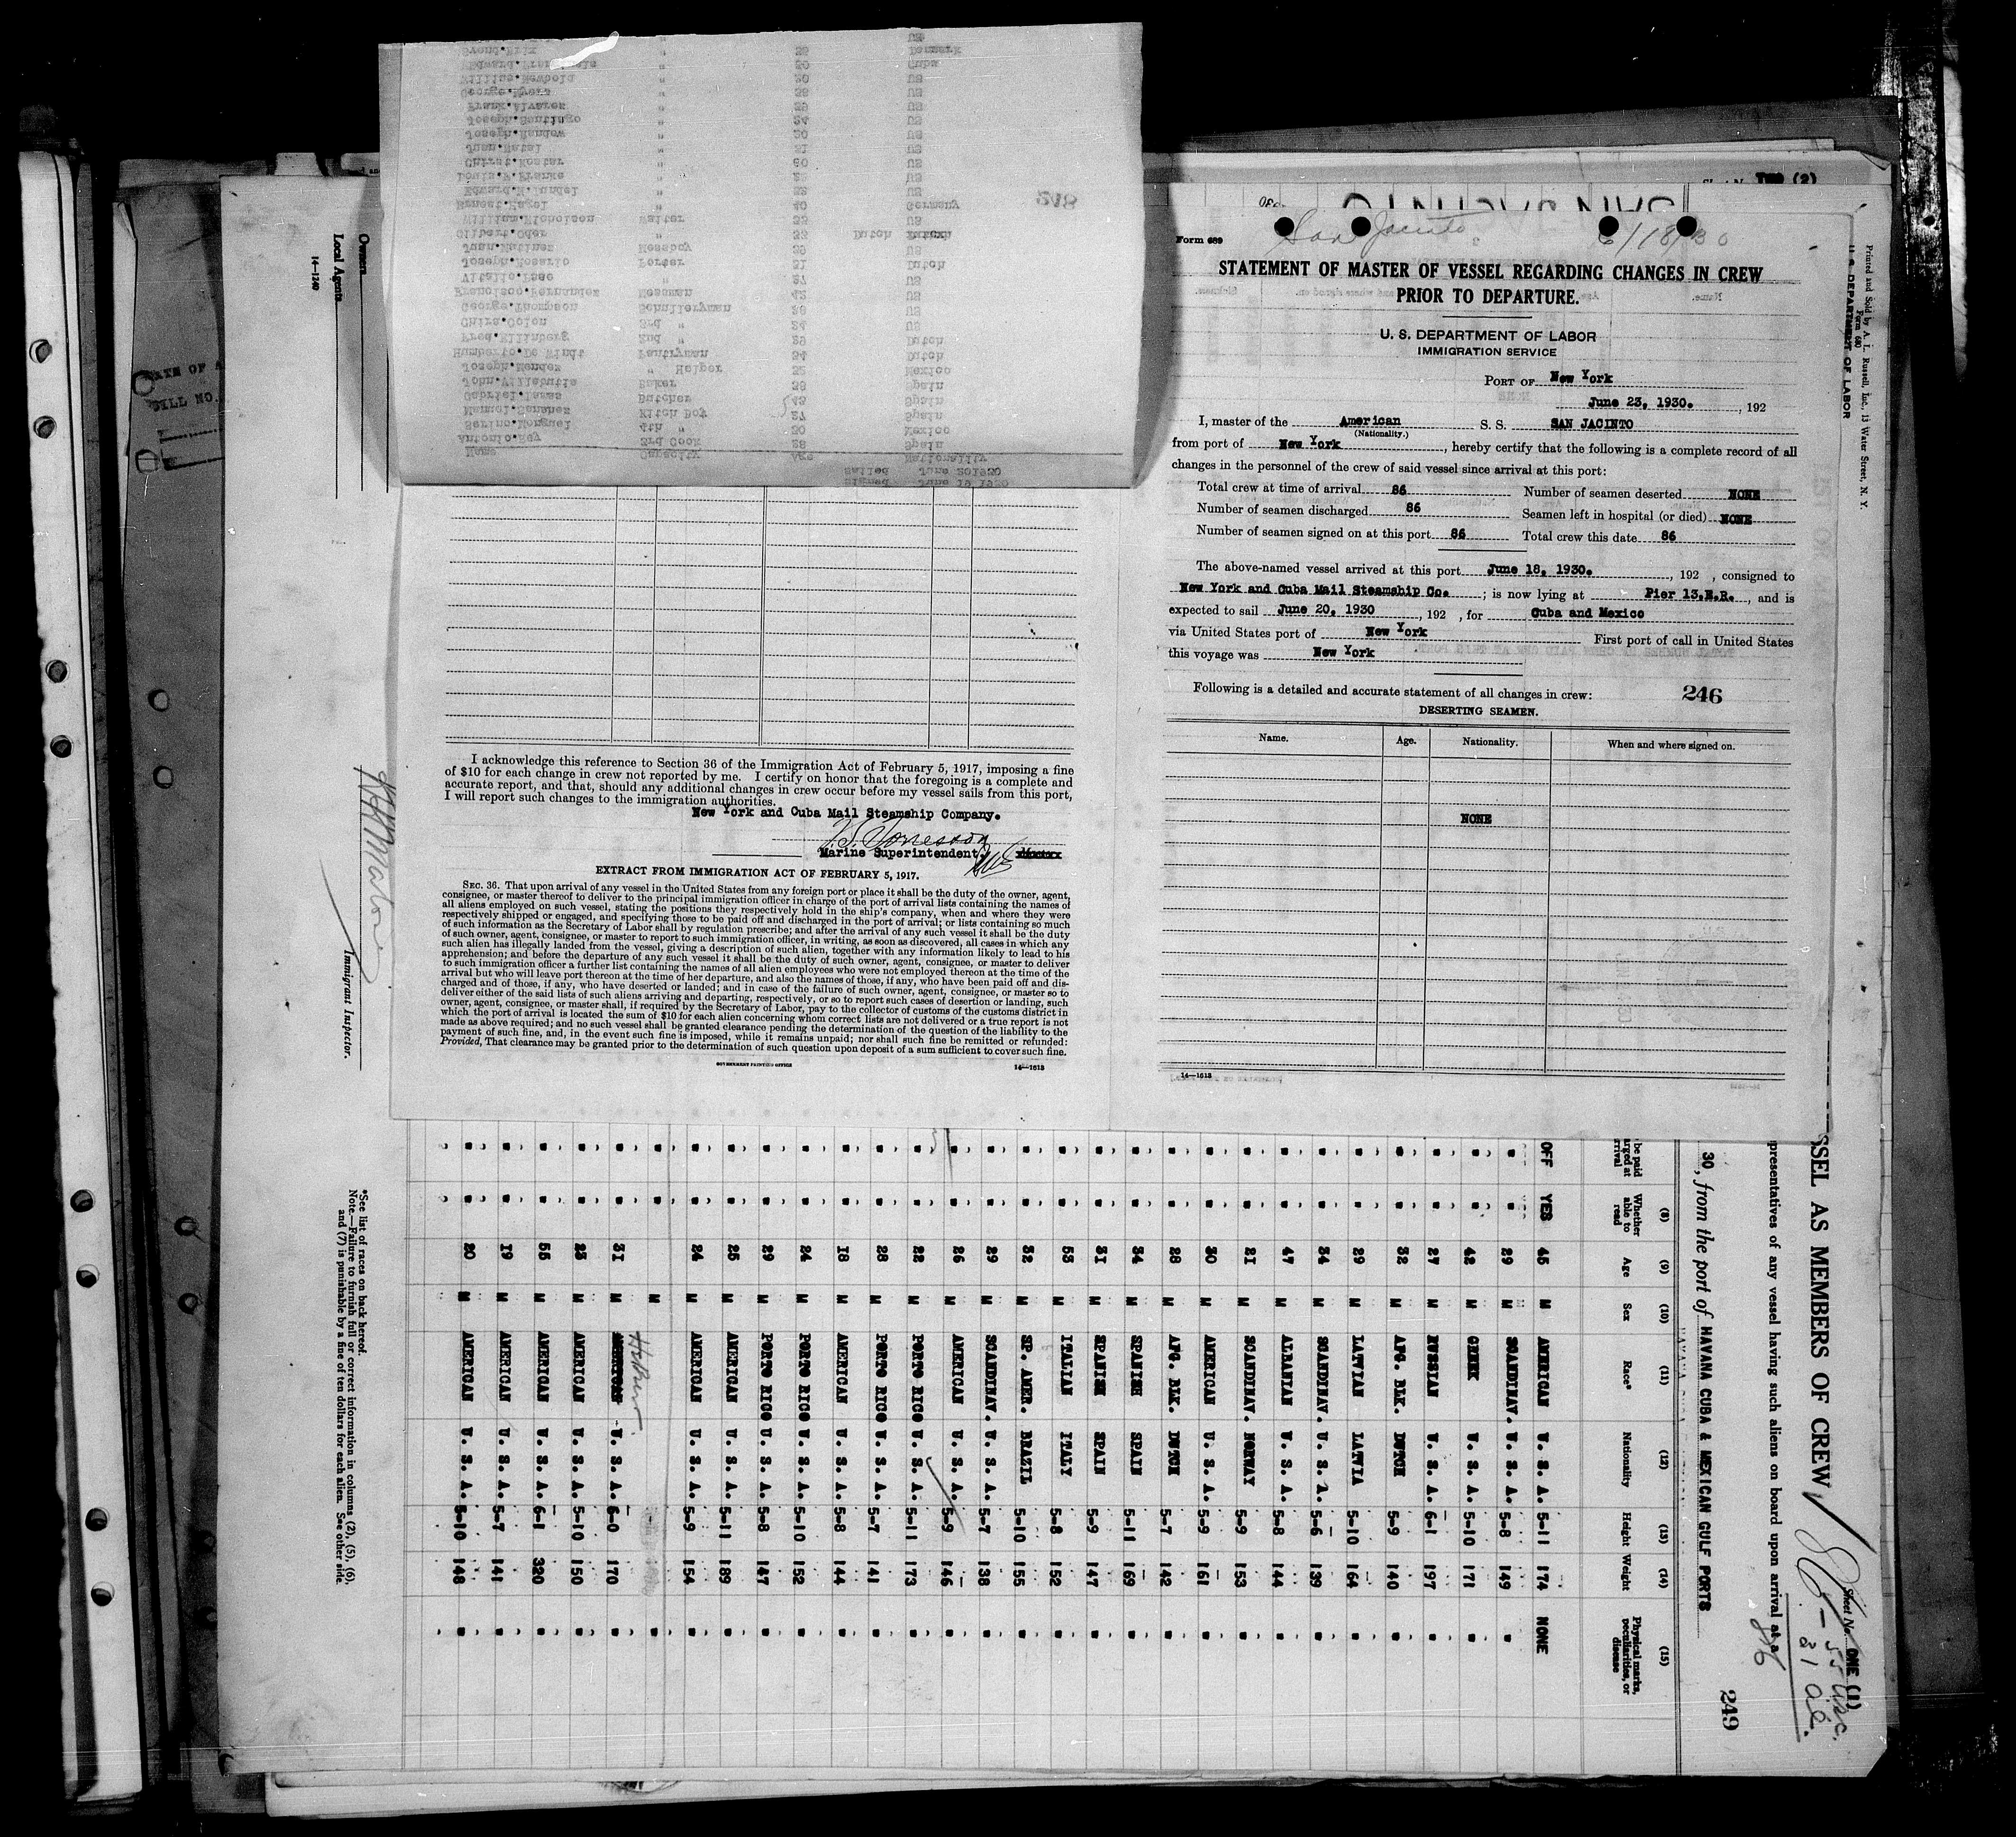 Form 689
San Jacinto
6/18/30
STATEMENT OF MASTER OF VESSEL REGARDING CHANGES IN CREW
PRIOR TO DEPARTURE.
U. S. DEPARTMENT OF LABOR
IMMIGRATION SERVICE
PORT OF New York
June 23, 1930. , 192
I, master of the American S. S. SAN JACINTO
(Nationality.)
from port of New York, hereby certify that the following is a complete record of all
changes in the personnel of the crew of said vessel since arrival at this port:
Total crew at time of arrival 86 Number of seamen deserted NONE
Number of seamen discharged 86 Seamen left in hospital (or died) NONE
Number of seamen signed on at this port 86 Total crew this date 86
The above-named vessel arrived at this port June 18, 1930. , 192 , consigned to
New York and Cuba Mail Steamship Co. ; is now lying at Pier 13.E.R. , and is
expected to sail June 20, 1930 , 192 , for Cuba and Mexico
via United States port of New York First port of call in United States
this voyage was New York
Following is a detailed and accurate statement of all changes in crew: 246
DESERTING SEAMEN.
Name. Age. Nationality. When and where signed on.
NONE
14—1613
Printed and Sold by A. L. Russell, Inc., 13 Water Street, N. Y.
Form 680
U. S. DEPARTMENT OF LABOR
Signed June 19 1930
Sailed June 201930
Name Capacity Age Nationality
Antonio.Rey 3rd Cook 28 Spain
4th " 30 Mexico
Kitch Boy 27 Spain
Butcher 43 Spain
Baker 38 Spain
Joseph.Mendez " Helper 32 Mexico
Humberto.De Windt Pantryman 34 Dutch
Fred.Ellinberg 2nd " 29 Dutch
Colon 3rd " 24 US
George.Thompson 28 US
Francisco.Fernandez Messman 42 US
" 27 US
Joseph.Rosario Porter 31 Dutch
Juan.Matinez Messboy 29 US
Gilbert.Oder " 33 Dutch
William.Nicholson Waiter 33 US
Ernest.Nagel " 40 Germany
Edward.H.Lundel " 22 US
Louis.F.Franke " US
" 50 US
Juan.Natal " 21 US
Joseph.Randow " 20 US
Joseph.Santiago " 24 US
Frank.Alvarez " 29 US
George.Myers " 38 US
William.Newbold " 20 US
" 50 Cuba
Svend.Erix " 38 Denmark
US
248
I acknowledge this reference to Section 36 of the Immigration Act of February 5, 1917, imposing a fine
of $10 for each change in crew not reported by me. I certify on honor that the foregoing is a complete and
accurate report, and that, should any additional changes in crew occur before my vessel sails from this port,
I will report such changes to the immigration authorities.
New York and Cuba Mail Steamship Company.
Marine Superintendent,
EXTRACT FROM IMMIGRATION ACT OF FEBRUARY 5, 1917.
SEC. 36. That upon arrival of any vessel in the United States from any foreign port or place it shall be the duty of the owner, agent,
consignee, or master thereof to deliver to the principal immigration officer in charge of the port of arrival lists containing the names of
all aliens employed on such vessel, stating the positions they respectively hold in the ship's company, when and where they were
respectively shipped or engaged, and specifying those to be paid off and discharged in the port of arrival; or lists containing so much
of such information as the Secretary of Labor shall by regulation prescribe; and after the arrival of any such vessel it shall be the duty
of such owner, agent, consignee, or master to report to such immigration officer, in writing, as soon as discovered, all cases in which any
such alien has illegally landed from the vessel, giving a description of such alien, together with any information likely to lead to his
apprehension; and before the departure of any such vessel it shall be the duty of such owner, agent, consignee, or master to deliver
to such immigration officer a further list containing the names of all alien employees who were not employed thereon at the time of the
arrival but who will leave port thereon at the time of her departure, and also the names of those, if any, who have been paid off and dis-
charged and of those, if any, who have deserted or landed; and in case of the failure of such owner, agent, consignee, or master so to
deliver either of the said lists of such aliens arriving and departing, respectively, or so to report such cases of desertion or landing, such
owner, agent, consignee, or master shall, if required by the Secretary of Labor, pay to the collector of customs of the customs district in
which the port of arrival is located the sum of $10 for each alien concerning whom correct lists are not delivered or a true report is not
made as above required; and no such vessel shall be granted clearance pending the determination of the question of the liability to the
payment of such fine, and, in the event such fine is imposed, while it remains unpaid; nor shall such fine be remitted or refunded:
Provided, That clearance may be granted prior to the determination of such question upon deposit of a sum sufficient to cover such fine.
GOVERNMENT PRINTING OFFICE 14—1613
Sheet No. ONE (1)
SSEL AS MEMBERS OF CREW
86 — 55 USC.
31 al.
86
presentatives of any vessel having such aliens on board upon arrival at a
30, from the port of HAVANA CUBA & MEXICAN GULF PORTS
249
(8) (9) (10) (11) (12) (13) (14) (15)
be paid Whether able to read Age Sex Race* Nationality Height Weight Physical marks, peculiarities, or disease
OFF YES 45 M AMERICAN U. S. A. 5-11 174 NONE
" " 29 M SCANDINAV. U. S. A. 5-8 149 "
" " 42 M GREEK U. S. A. 5-10 171 "
" " 27 M RUSSIAN U. S. A. 6-1 197 "
" " 32 M AFG. BLK. DUTCH 5-9 140 "
" " 29 M LATVIAN LATVIA 5-10 164 "
" " 34 M SCANDINAV. U. S. A. 5-6 139 "
" " 47 M ALBANIAN U. S. A. 5-8 144 "
" " 21 M SCANDINAV. NORWAY 5-9 153 "
" " 30 M AMERICAN U. S. A. 5-9 161 "
" " 28 M AFG. BLK. DUTCH 5-7 142 "
" " 34 M SPANISH SPAIN 5-11 169 "
" " 31 M SPANISH SPAIN 5-9 147 "
" " 53 M ITALIAN ITALY 5-8 152 "
" " 32 M SP. AMER. BRAZIL 5-10 155 "
" " 29 M SCANDINAV. U. S. A. 5-7 138 "
" " 26 M AMERICAN U. S. A. 5-9 146 "
" " 22 M PORTO RICO U. S. A. 5-11 173 "
" " 28 M PORTO RICO U. S. A. 5-7 141 "
" " 18 M AMERICAN U. S. A. 5-8 144 "
" " 24 M PORTO RICO U. S. A. 5-10 152 "
" " 29 M PORTO RICO U. S. A. 5-8 147 "
" " 25 M AMERICAN U. S. A. 5-11 189 "
" " 24 M AMERICAN U. S. A. 5-9 154 "
" " M "
Hebrew
" " 31 M AMERICAN U. S. A. 6-0 170 "
" " 23 M AMERICAN U. S. A. 5-10 150 "
" " 55 M AMERICAN U. S. A. 6-1 320 "
" " 19 M AMERICAN U. S. A. 5-7 141 "
" " 20 M AMERICAN U. S. A. 5-10 148 "
*See list of races on back hereof.
Note.—Failure to furnish full or correct information in columns (2), (5), (6),
and (7) is punishable by a fine of ten dollars for each alien. See other side.
Immigrant Inspector.
Owners
Local Agents
14—1240
BILL NO.
TWO (2)
SAN JACINTO